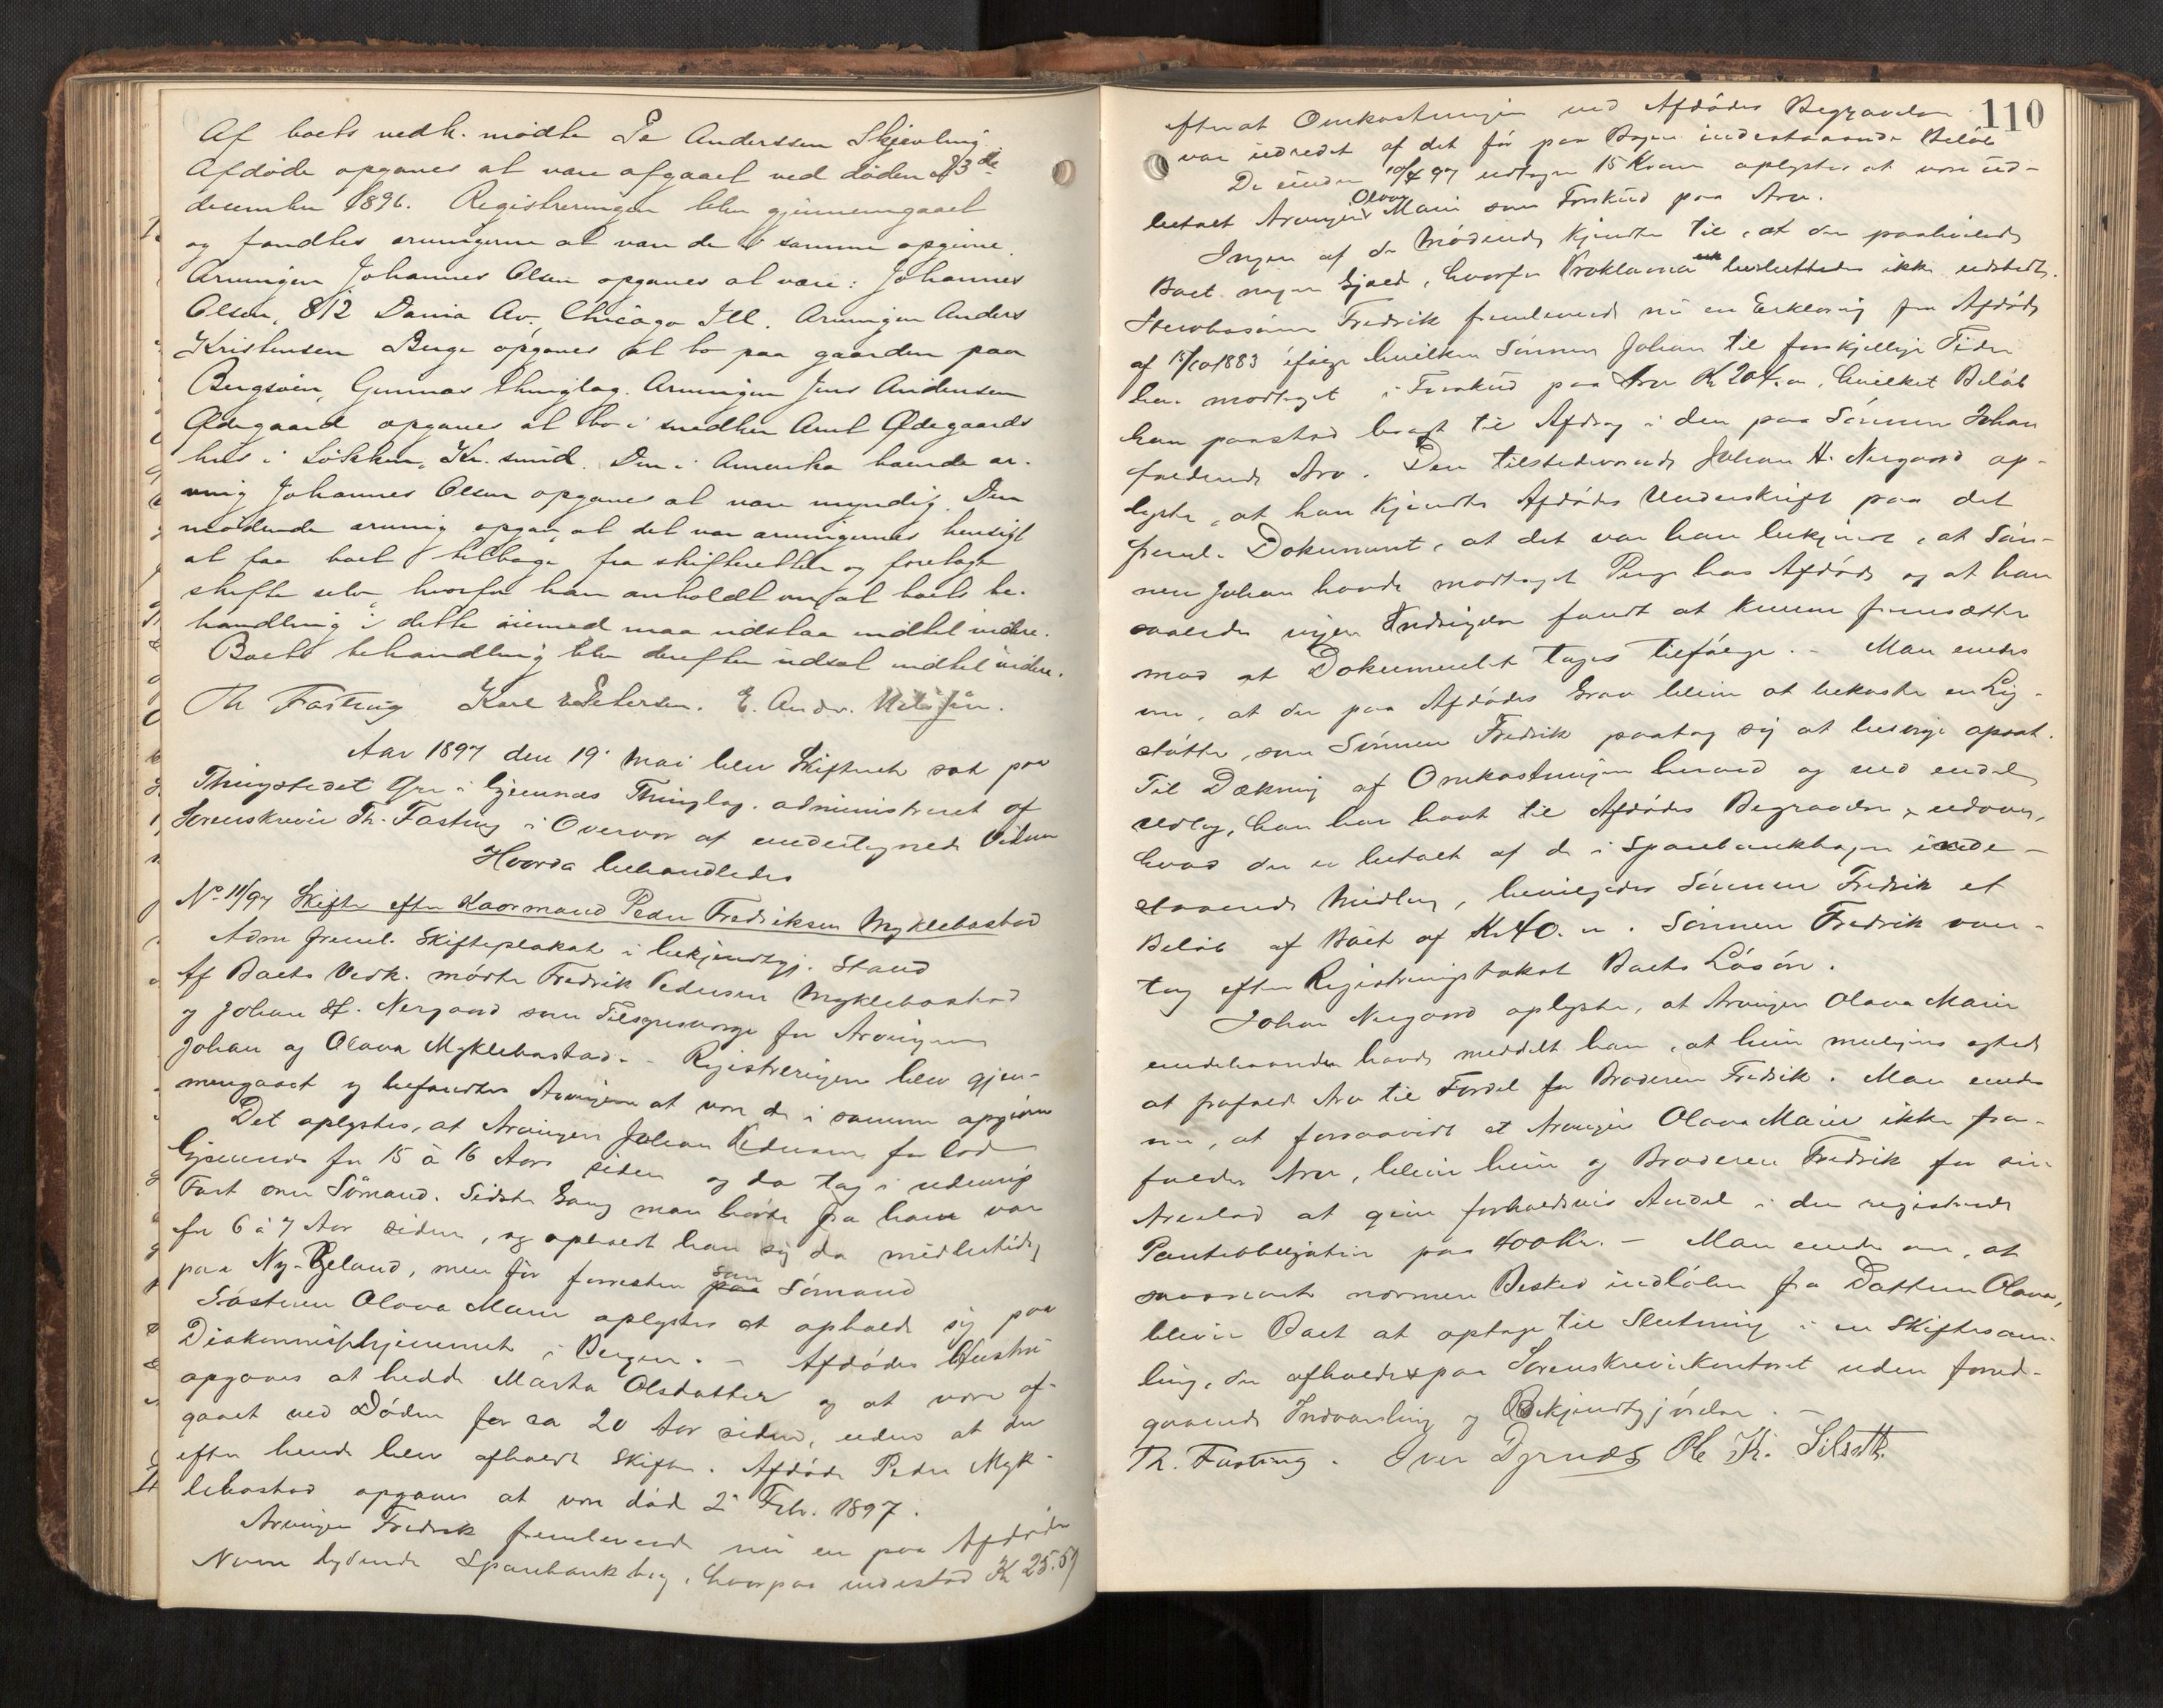 Af boets vedk. mødte Pe Anderssen Skjevling
Afdøde opgaves at være afgaaet ved døden d 3die
december 1896. Registreringen blev gjennemgaaet
og fandtes arvingerne at være de i samme opgivne.
Arvingen Johannes Olsen opgaves at være: Johannes
Olsen, 812 Dania Av. Chicago Ill. Arvingen Anders
Kristensen Berge opgaves at bo paa gaarden paa
Bergsøen, Gimnæs thinglag. Arvingen Jens Andersen
Ødegaard opgaves at bo i snedker Arnt Ødegaards
hus i Løkken, Kr.sund. Den i Amerika boende ar-
ving Johannes Olsen opgaves at være myndig. Den
mødende arving opgav, at det var arvingernes hensigt
at faa boet tilbage fra skifteretten og foretage
skifte selv, hvorfor han anholdt om, at boets be-
handling i dette øiemed maa udstaa indtil videre.
Boets behandling blev derefter udsat indtil videre.
Th Fasting Karl Petersen. E. Andr. Nilssen.
Aar 1897 den 19. Mai blev Skifteret sat paa
Thingstedet Øre i Gjemnæs Thinglag. administreret af
Sorenskriver Th. Fasting i Overvær af undertegnede Vidner
Hvorda behandledes
No 11/97 Skifte efter Kaarmand Peder Fredriksen Myklebostad
Adm freml. Skifteplakat i bekjendtgj. Stand
Af Boets Vedk. mødte Fredrik Pedersen Myklebostad
og Johan H. Nergaard som Tilsynsværge for Arvingerne
Johan og Olava Myklebostad. - Registreringen blev gjen-
nemgaaet og befandtes Arvingerne at være de i samme opgivne
Det oplystes, at Arvingen Johan Pedersen forlod
Gjemnæs for 15 à 16 Aar siden og da tog i udenrigs
Fart som Sømand. Sidste Gang man hørte fra ham var
for 6 à 7 Aar siden, og opholdt han sig da midlertidig
paa Ny-Zeland, men før forresten som Sømand
Søsteren Olava Marie oplystes at opholde sig paa
Diakonnissehjemmet i Bergen. - Afdødes Hustru
opgaves at hedde Marta Olsdatter og at være af-
gaaet ved Døden for ca 20 Aar siden, uden at der
efter hende blev afholdt Skifte. Afdøde Peder Myk-
lebostad opgaves at være død 2. Febr. 1897.
Arvingen Fredrik fremleverede nu en paa Afdødes
Navn lydende Sparebankbog, hvorpaa indestod Kr 25.59
110
efterat Omkostningerne ved Afdødes Begravelse
var udredet af det før paa Bogen indestaaende Beløb
De under 10/4 97 udtagne 15 Kroner oplystes at være ud-
betalt Arvingen Olava Marie som Forskud paa Arv.
Ingen af de Mødende kjendte til, at der paahvilede
Boet nogen Gjæld, hvorfor Proklama besluttedes ikke udstedt.
Stervbosønnen Fredrik fremleverede nu en Erklæring fra Afdøde
af 15/10 1883 ifølge hvilken Sønnen Johan til forskjellige Tider
har modtaget i Forskud paa Arv Kr 204.00, hvilket Beløb
han paastod bragt til Afdrag i den paa Sønnen Johan
faldende Arv. Den tilstedeværende Johan H. Nergaard op-
lyste, at han kjendte Afdødes Underskrift paa det
freml. Dokument, at det var ham bekjendt, at Søn-
nen Johan havde modtaget Penge hos Afdøde og at han
saaledes ingen Indsigelse fandt at kunne fremsætte
mod at Dokumentet toges tilfølge. - Man enedes
om, at der paa Afdødes Grav bliver at bekoste en Lig-
støtte, som Sønnen Fredrik paatog sig at besørge opsat.
Til Dækning af Omkostningerne herved og ved endel
Udlæg, han har havt til Afdødes Begravelse, udover,
hvad der er betalt af de i Sparebankbogen inde-
staaende Midler, bevilgedes Sønnen Fredrik et
Beløb af Boet af Kr 40.00. Sønnen Fredrik over-
tog efter Registreringstakst Boets Løsøre.
Johan Nergaard oplyste, at Arvingen Olava Marie
endehaanden havde meddelt ham, at hun muligens agtede
at frafalde Arv til Fordel for Broderen Fredrik. Man enedes
om, at forsaavidt at Arvingen Olava Marie ikke fra-
falder Arv, bliver hun og Broderen Fredrik for sin
Arvelod at give forholdsvis Andel i den registrerede
Panteobligation paa 400 Kr. - Man enedes om, at
saasnart nærmere Besked indløber fra Datteren Olava,
bliver Boet at optage til Slutning i en Skiftesam-
ling, der afholdes paa Sorenskriverkontoret uden forud-
gaaende Indvarsling og Bekjendtgjørelse. -
Th. Fasting. Iver Djrnæs Ole K. Silseth.